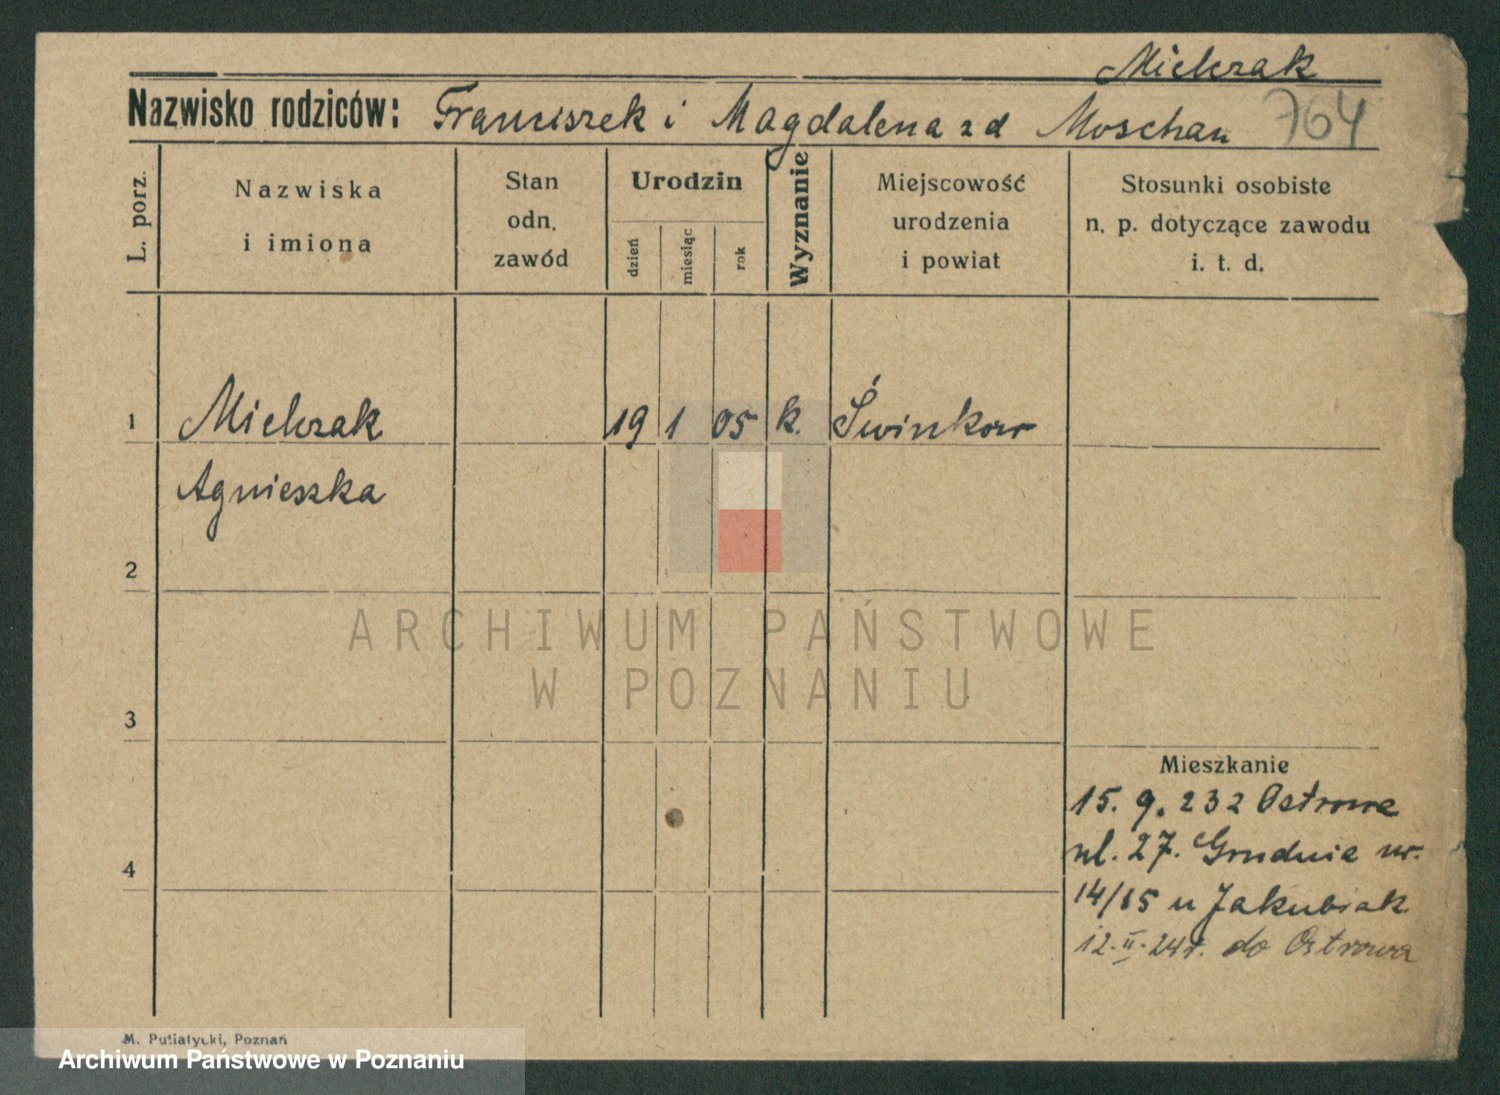 Mielczak
Nazwisko rodziców: Franciszek i Magdalena zd Moschan 764
L. porz.
Nazwiska
i imiona
Stan
odn.
zawód
Urodzin
dzień
miesiąc
rok
Wyznanie
Miejscowość
urodzenia
i powiat
Stosunki osobiste
n. p. dotyczące zawodu
i. t. d.
1 Mielczak 19 1 05 k. Świnkow
Agnieszka
2
ARCHIWUM PAŃSTWOWE
W POZNANIU
3
Mieszkanie
15. 9. 232 Ostrowa
ul. 27. Grudnia nr.
4
14/15 u Jakubiak
12. II. 24r. do Ostrowa
M. Putiatycki, Poznań
Archiwum Państwowe w Poznaniu